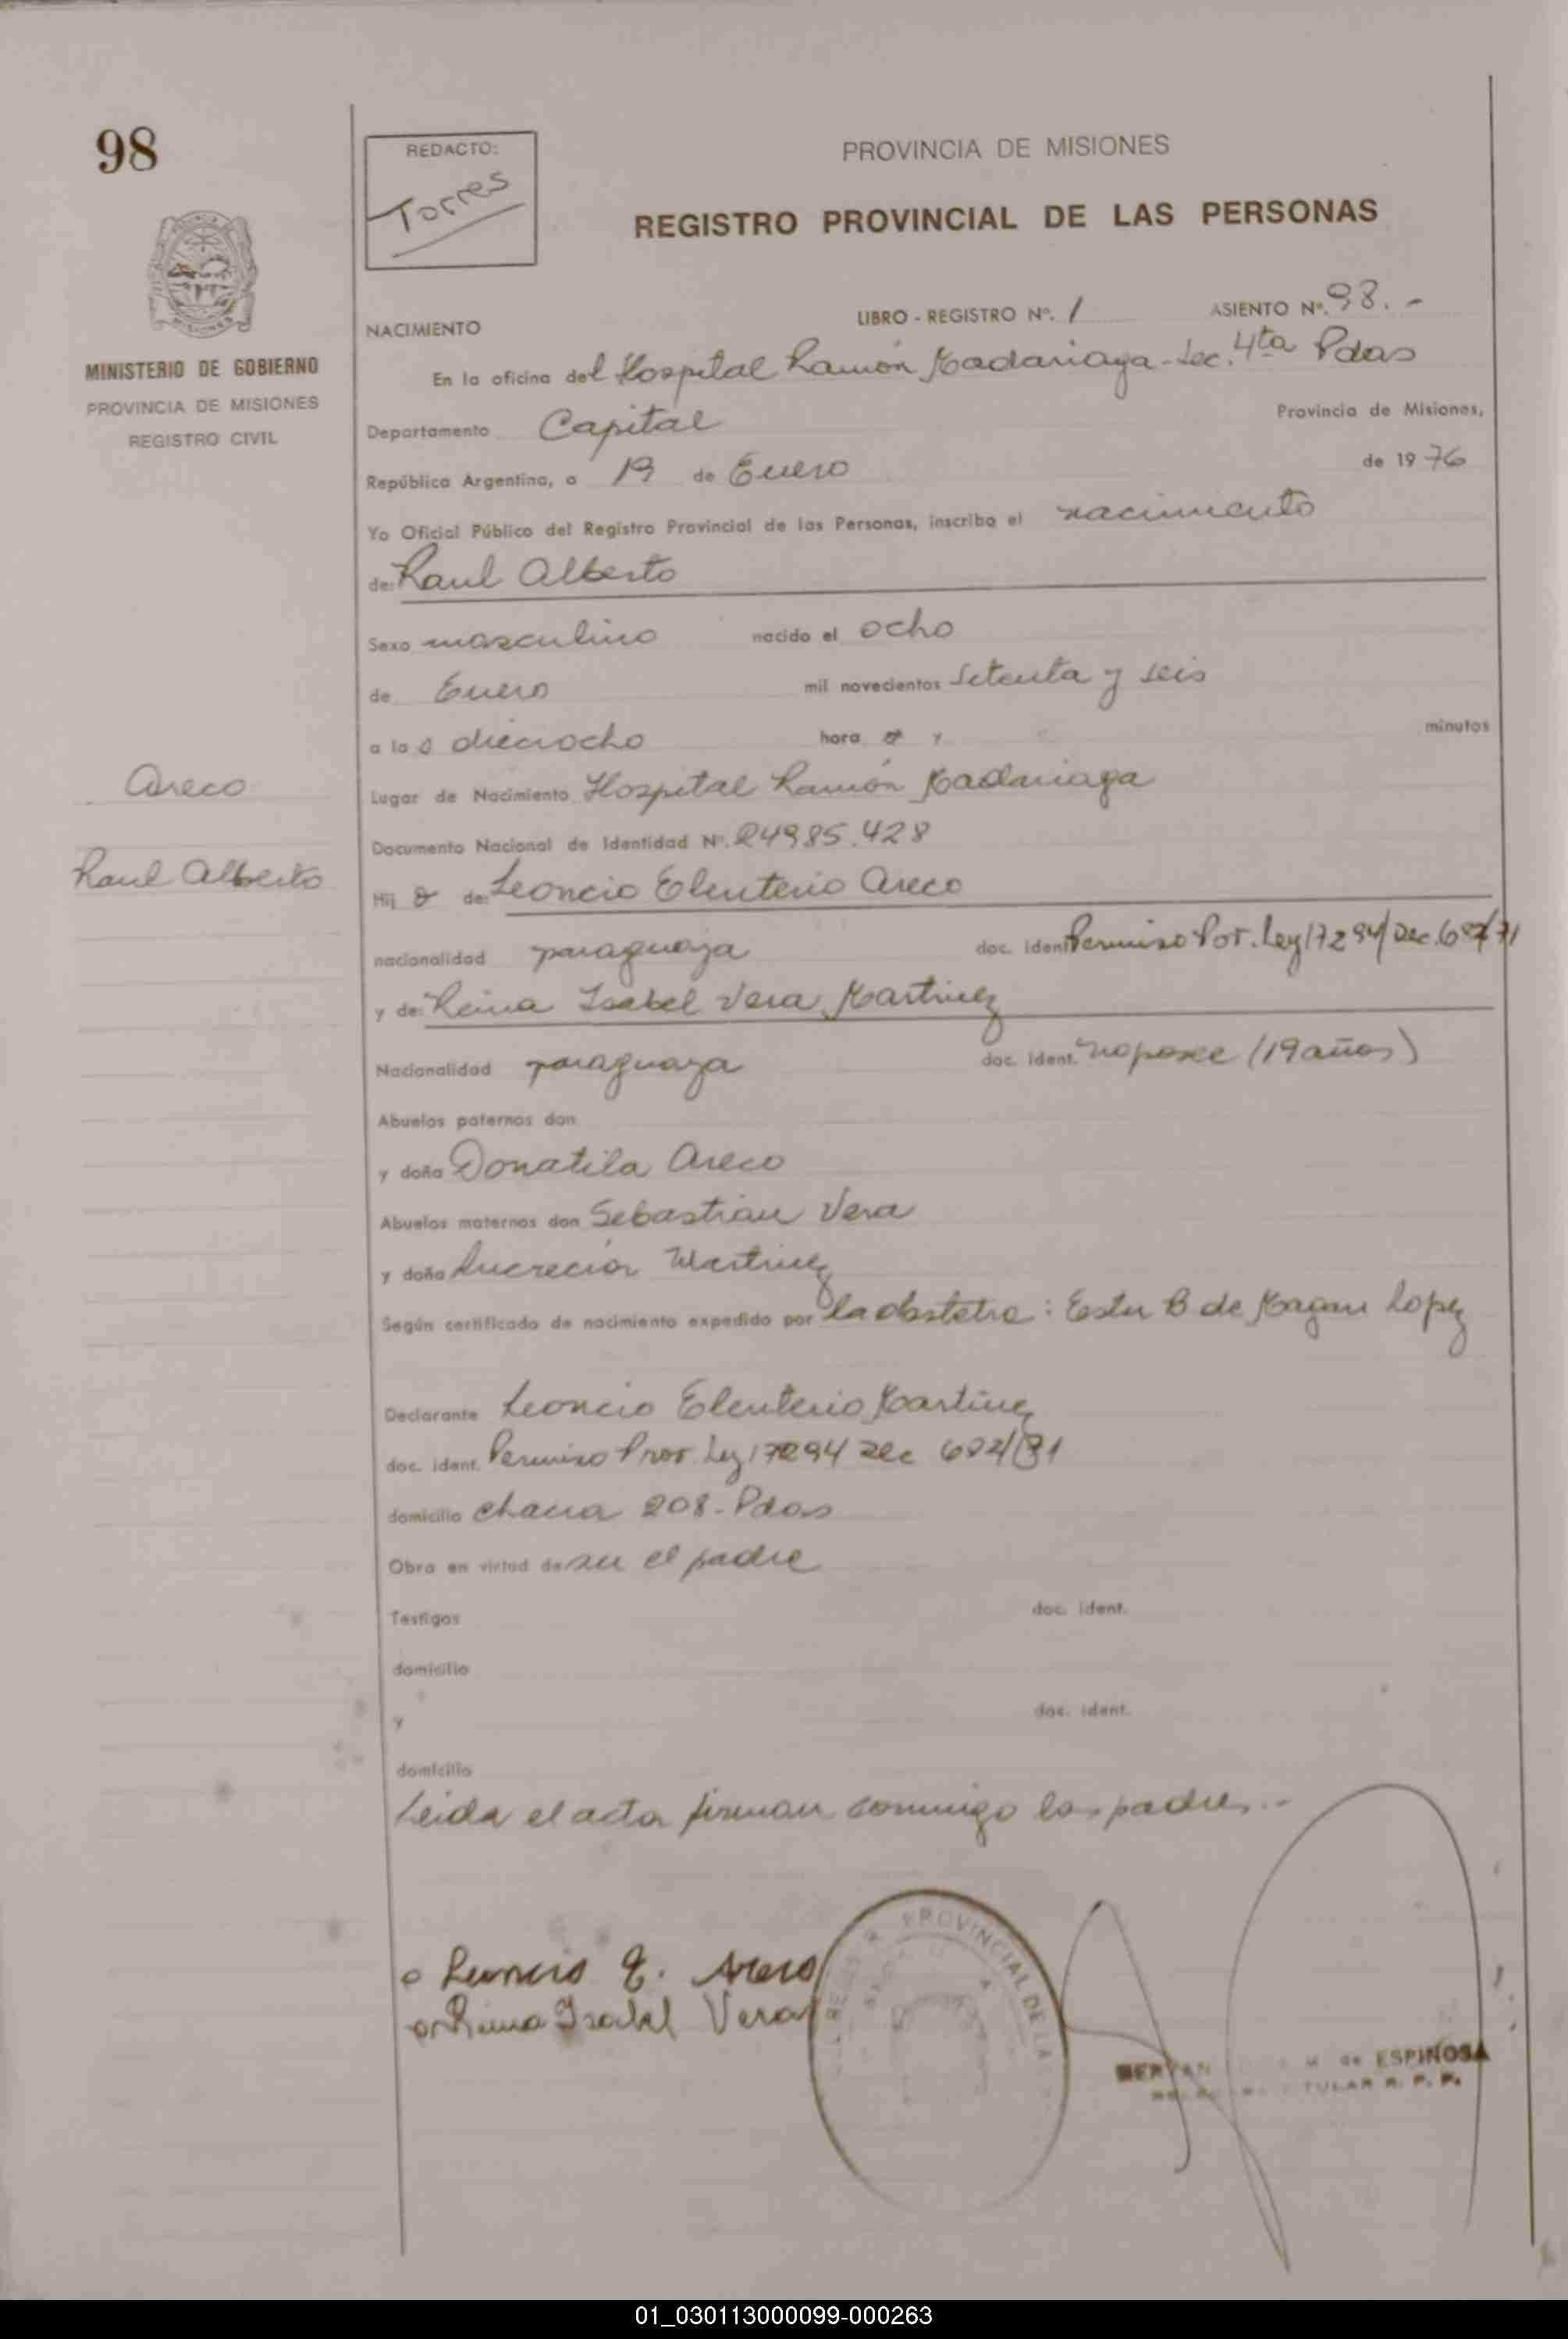 98
REDACTO:
Torres
PROVINCIA DE MISIONES
REGISTRO PROVINCIAL DE LAS PERSONAS
MINISTERIO DE GOBIERNO
PROVINCIA DE MISIONES
REGISTRO CIVIL
NACIMIENTO LIBRO - REGISTRO Nº. 1 ASIENTO Nº. 98.-
En la oficina del Hospital Ramón Madariaga - Sec. 4ta Pdas
Departamento Capital Provincia de Misiones,
República Argentina, a 19 de Enero de 1976
Yo Oficial Público del Registro Provincial de las Personas, inscribo el nacimiento
de: Raul Alberto
Sexo masculino nacido el ocho
de Enero mil novecientos setenta y seis
a las dieciocho hora y minutos
Areco
Lugar de Nacimiento Hospital Ramón Madariaga
Documento Nacional de Identidad Nº. 24985.428
Raul Alberto
Hijo de: Leoncio Eleuterio Areco
nacionalidad paraguaya doc. ident. Permiso Por. Ley 17294/Dec. /71
y de: Reina Isabel Vera Martinez
Nacionalidad paraguaya doc. ident. no posee (19 años)
Abuelos paternos don
y doña Donatila Areco
Abuelos maternos don Sebastian Vera
y doña Lucrecia Martinez
Según certificado de nacimiento expedido por la obstetra: Ester B de Magan Lopez
Declarante Leoncio Eleuterio Martinez
doc. ident. Permiso Pror. Ley 17294 Dec
domicilio chacra 208 - Pdas
Obra en virtud de ser el padre
Testigos doc. ident.
domicilio
y doc. ident.
domicilio
Leida el acta firman conmigo los padres.-
Leoncio E. Areco
Reina Isabel Vera
PROVINCIAL DE LA
M de ESPINOSA
TULAR R. P. P.
01_030113000099-000263